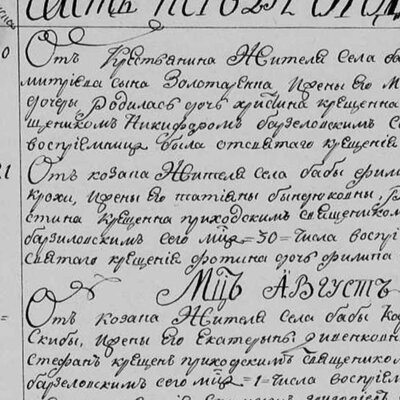 Отъ крестьянина Жителя села ба
митріева сына Золотаренка, И жены его М
дочеры родилась дочь христина крещенна
щеникомъ Никифоромъ барзеловскимъ с
воспріємница была отсвятаго крещенія
Отъ козака Жителя Села бабы фили
крохи, и жены его татіяны
стина крещенна приходскимъ священиком
барзиловскимъ сего мца =30= числа воспрі
святаго крещенія фотина дочь филипа
Мцъ Августъ
Отъ козака Жителя Села бабы Ка
Скибы, И жены Его Екатерины
Стефанъ крещенъ приходскимъ священиком
барзеловскимъ сего мца =1= числа воспріем